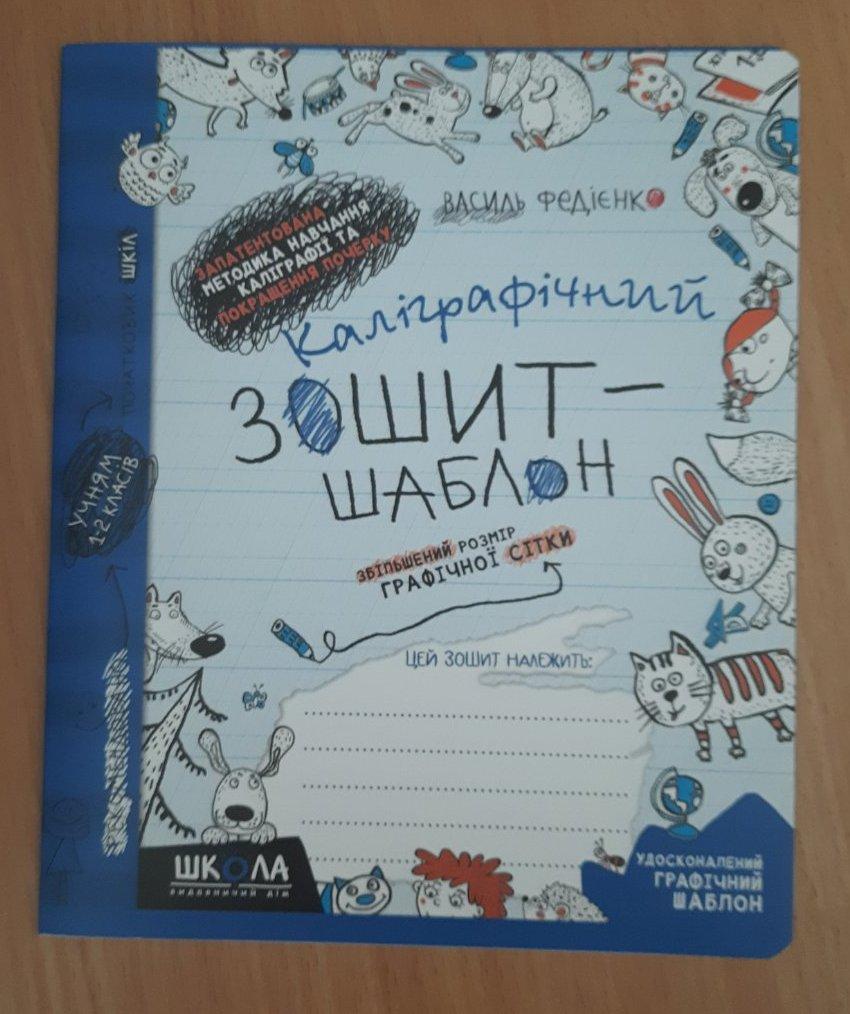 ВАСИЛЬ ФЕДІЄНКО
ЗАПАТЕНТОВАНА
МЕТОДИКА НАВЧАННЯ
КАЛІГРАФІЇ ТА
ПОКРАЩЕННЯ ПОЧЕРКУ
Каліграфічний
ЗОШИТ–
ШАБЛОН
ЗБІЛЬШЕНИЙ РОЗМІР
ГРАФІЧНОЇ СІТКИ
ЦЕЙ ЗОШИТ НАЛЕЖИТЬ:
УЧНЯМ
1-2 КЛАСІВ
ПОЧАТКОВИХ ШКІЛ
ШКОЛА
ВИДАВНИЧИЙ ДІМ
УДОСКОНАЛЕНИЙ
ГРАФІЧНИЙ
ШАБЛОН